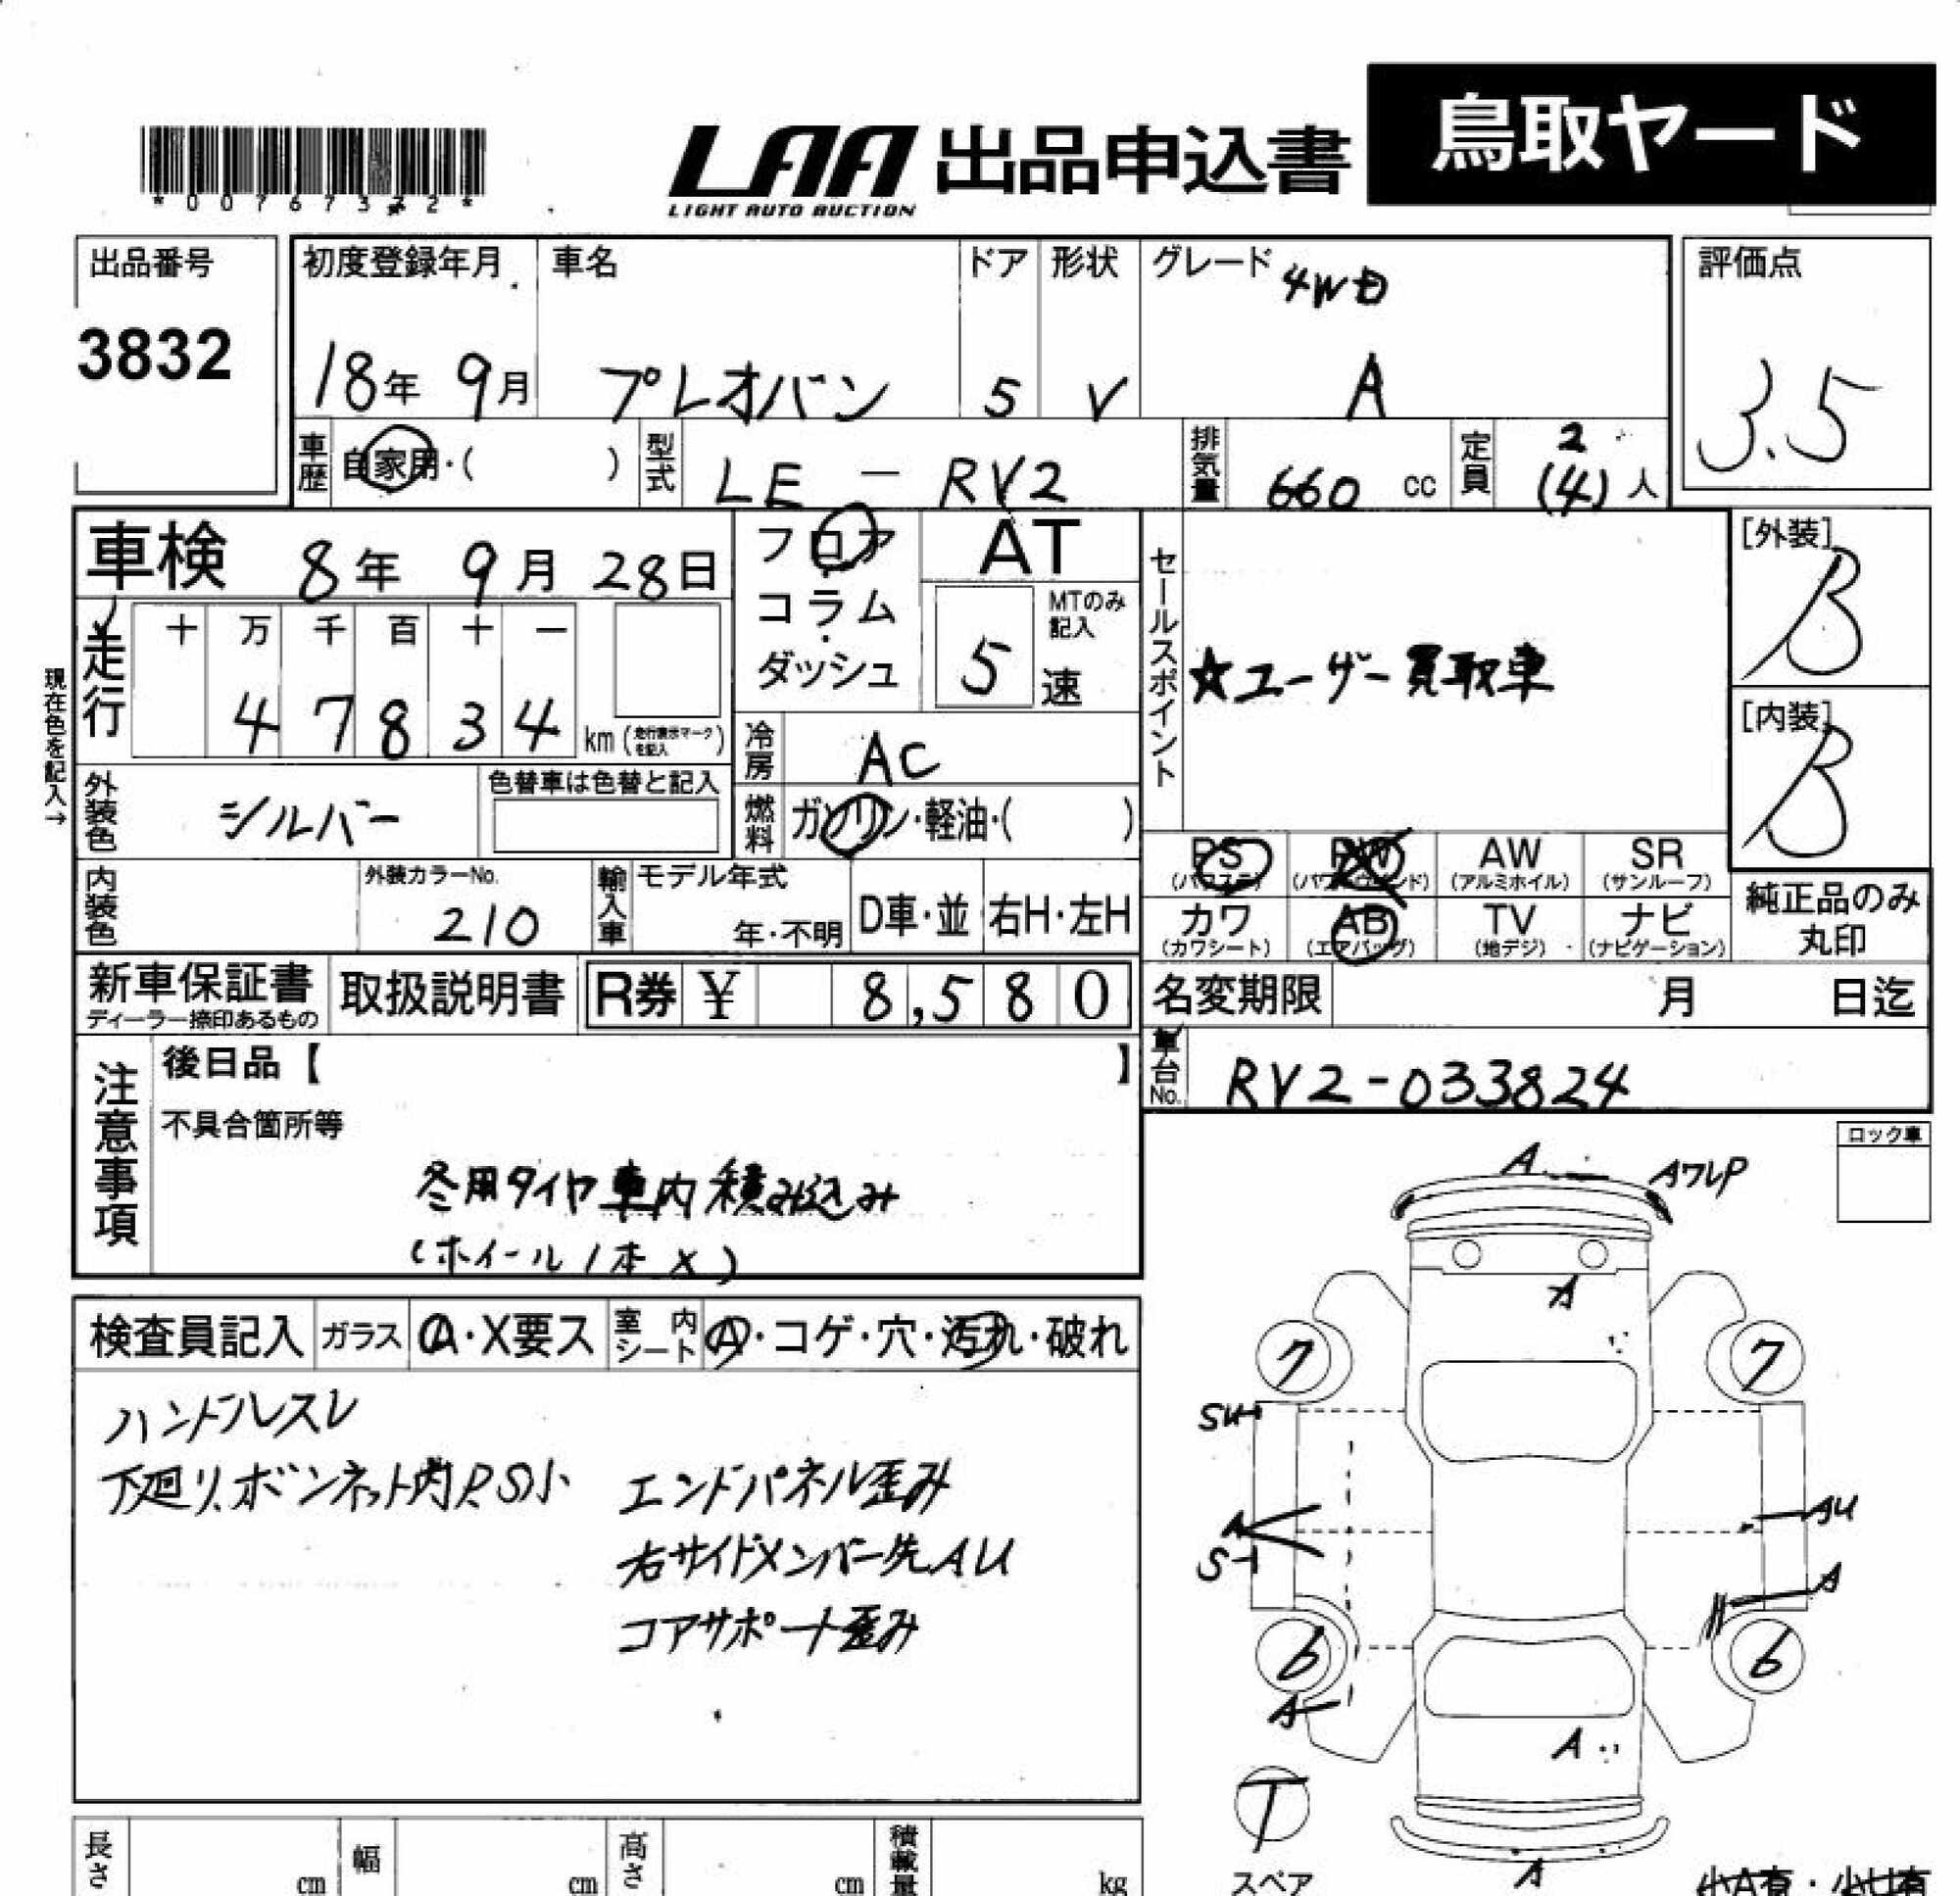 *0076732*
LAA 出品申込書 鳥取ヤード
LIGHT AUTO AUCTION
出品番号 3832
初度登録年月 18年 9月
車名 プレオバン
ドア 5
形状 V
グレード 4WD A
評価点 3.5
車歴 自家用・( )
型式 LE - RV2
排気量 660 cc
定員 2 (4)人
車検 8年 9月 28日
フロア・コラム・ダッシュ
AT
5 速 MTのみ記入
セールスポイント
☆ユーザー買取車
[外装] B
[内装] B
現在色を記入→
走行 十 万 千 百 十 一
4 7 8 3 4 km (走行表示マークを記入)
冷房 AC
外装色 シルバー
色替車は色替と記入
燃料 ガソリン・軽油・( )
PS (パワステ)
AW (アルミホイル)
SR (サンルーフ)
カワ (カワシート)
AB (エアバッグ)
TV (地デジ)
ナビ (ナビゲーション)
純正品のみ丸印
内装色
外装カラーNo. 210
輸入車 モデル年式 年・不明
D車・並
右H・左H
新車保証書 ディーラー捺印あるもの
取扱説明書
R券 ¥ 8,580
名変期限 月 日迄
車台No. RV2-033824
注意事項
後日品【 】
不具合箇所等
冬用タイヤ車内積み込み
(ホイール1本X)
ロック車
検査員記入 ガラス A・X要ス 室内シート A・コゲ・穴・汚れ・破れ
ハンドルスレ
下廻り、ボンネット内P.S小
エンドパネル歪み
右サイドメンバー先AU
コアサポート歪み
A
AワレP
A
7
7
SU
A
S
AU
A
6
6
A
A
T
スペア
A
長さ cm
幅 cm
高さ cm
積載量 kg
小A有・小U有